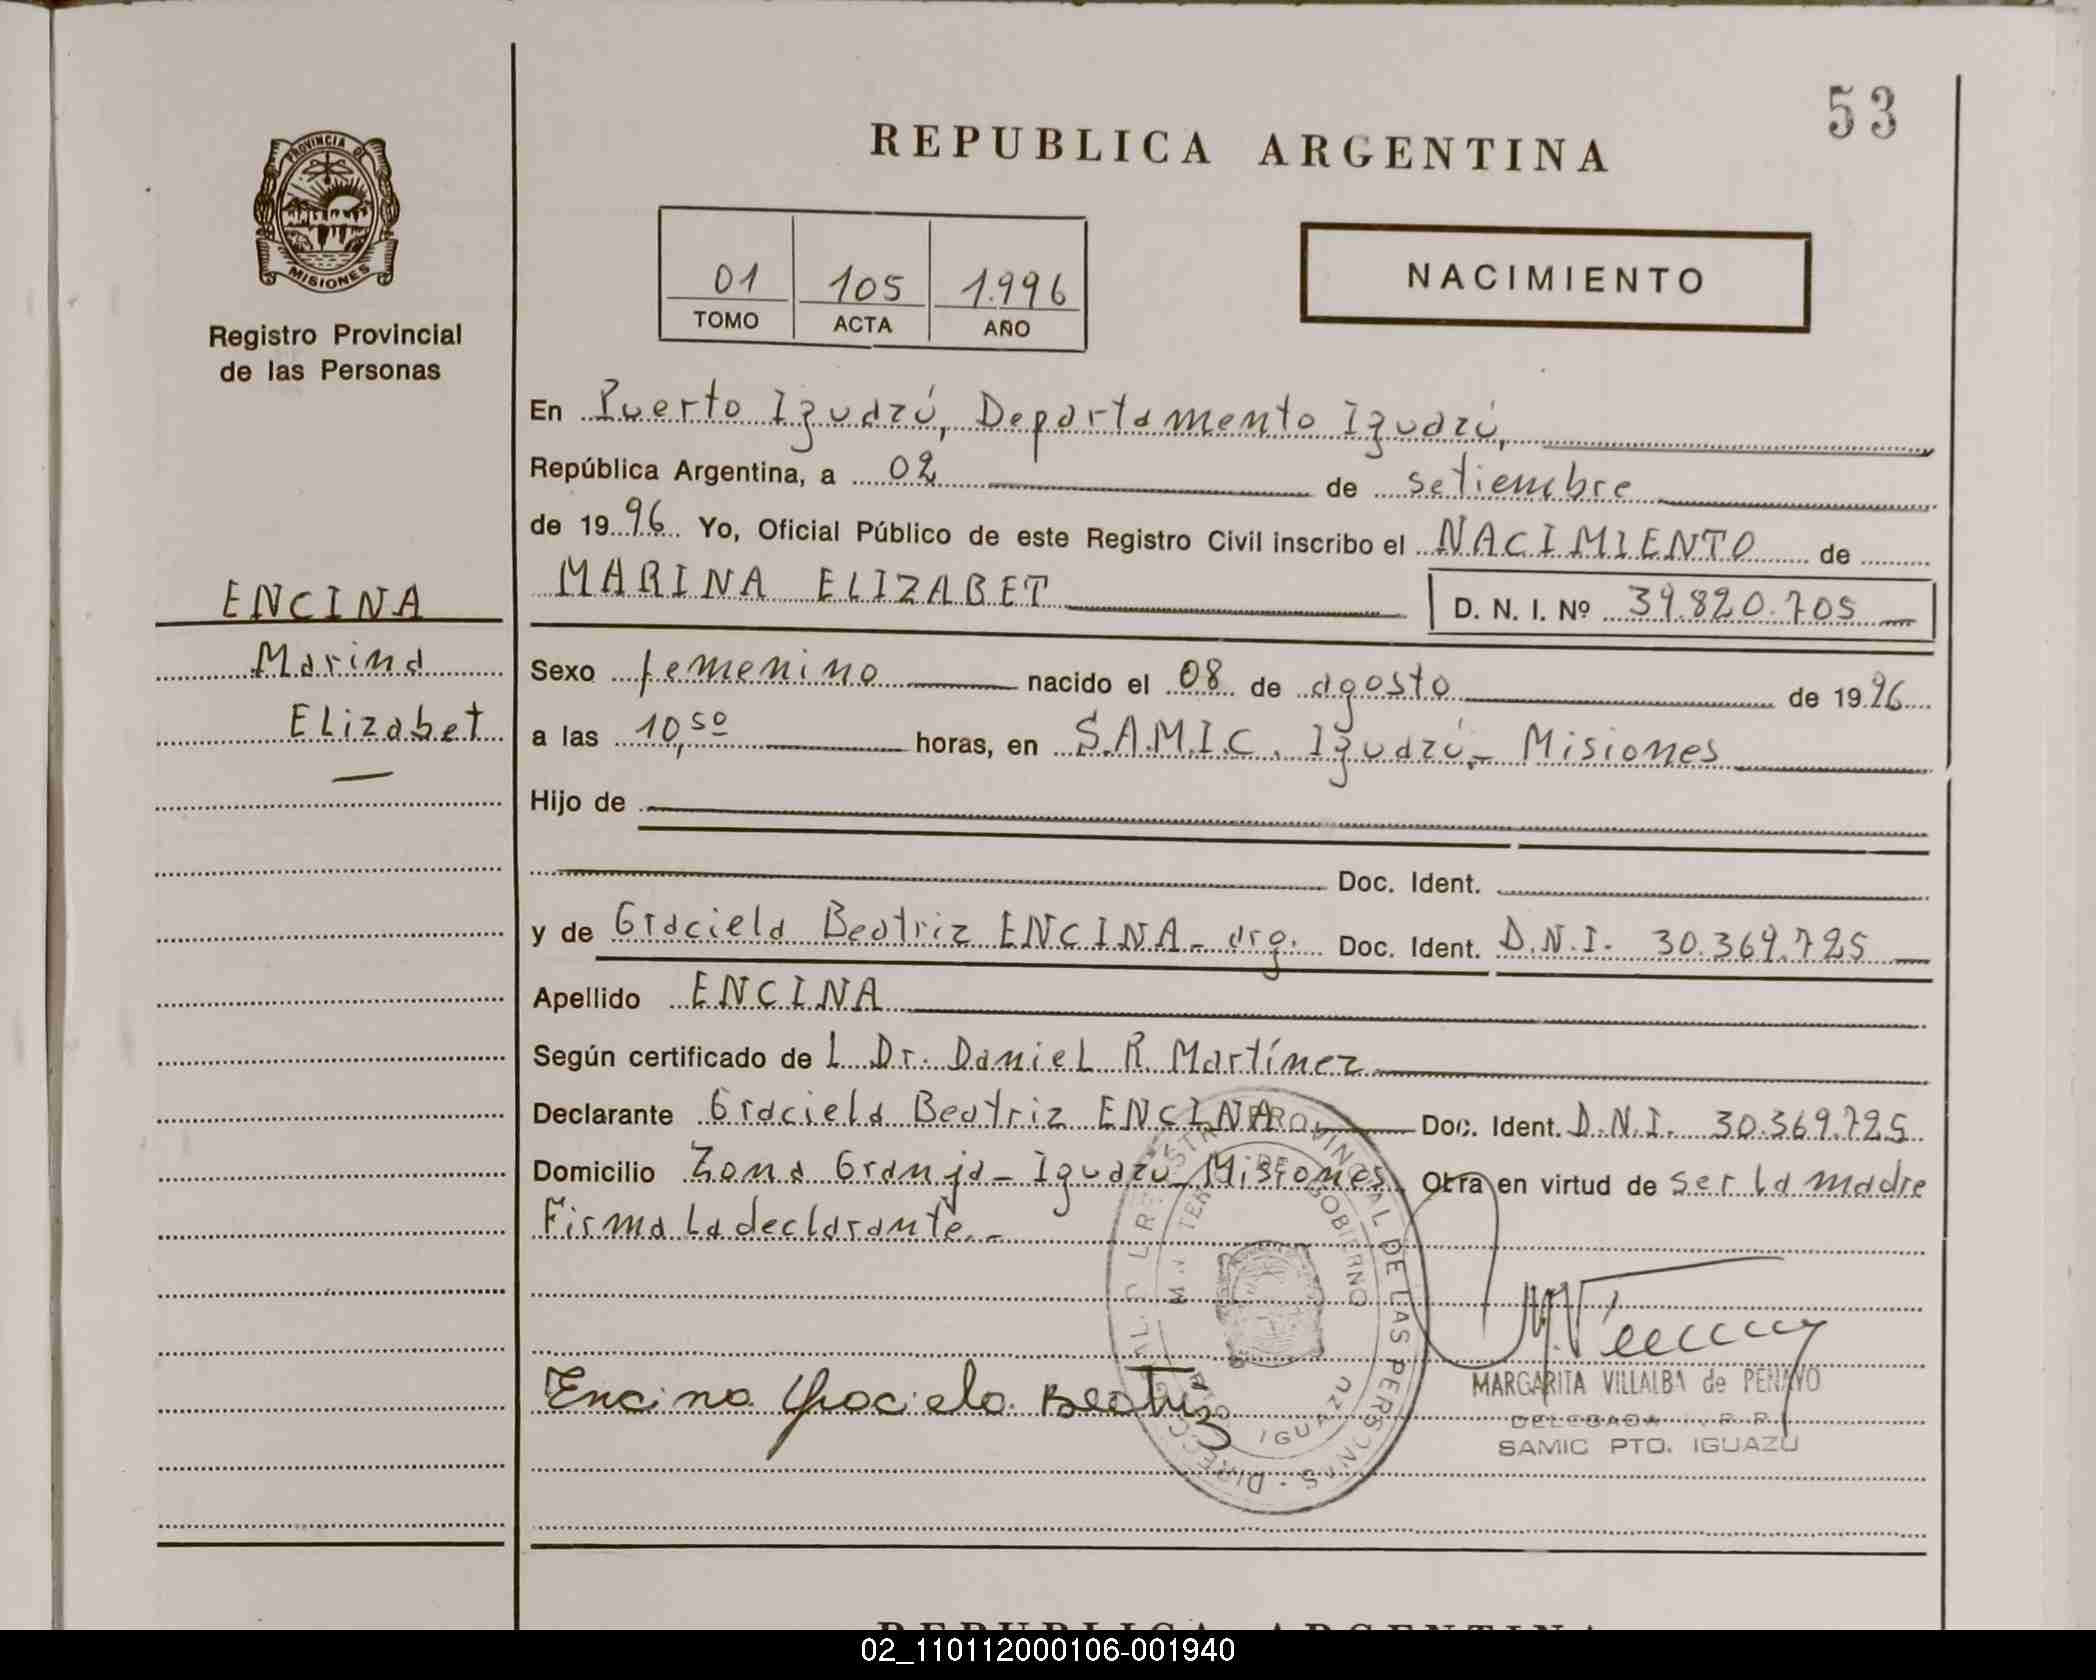 53
REPUBLICA ARGENTINA
PROVINCIA DE
MISIONES
Registro Provincial
de las Personas
01 105 1.996
TOMO ACTA AÑO
NACIMIENTO
En Puerto Iguazú, Departamento Iguazú,
República Argentina, a 02 de setiembre
de 19 96 Yo, Oficial Público de este Registro Civil inscribo el NACIMIENTO de
MARINA ELIZABET D. N. I. Nº 39.820.705
ENCINA
Marina
Elizabet
Sexo femenino nacido el 08 de agosto de 19 96
a las 10,50 horas, en S.A.M.I.C. Iguazú.- Misiones
Hijo de
Doc. Ident.
y de Graciela Beatriz ENCINA - arg. Doc. Ident. D.N.I. 30.369.725
Apellido ENCINA
Según certificado de L Dr. Daniel R. Martínez
Declarante Graciela Beatriz ENCINA Doc. Ident. D.N.I. 30.369.725
Domicilio Zona Granja - Iguazú - Misiones. Obra en virtud de ser la madre
Firma la declarante.-
Encina Graciela Beatriz
MARGARITA VILLALBA de PENAYO
DELEGADA R. P.
SAMIC PTO. IGUAZU
PROVINCIAL DE LAS PERSONAS
DE GOBIERNO
IGUAZU
REPUBLICA ARGENTINA
02_110112000106-001940